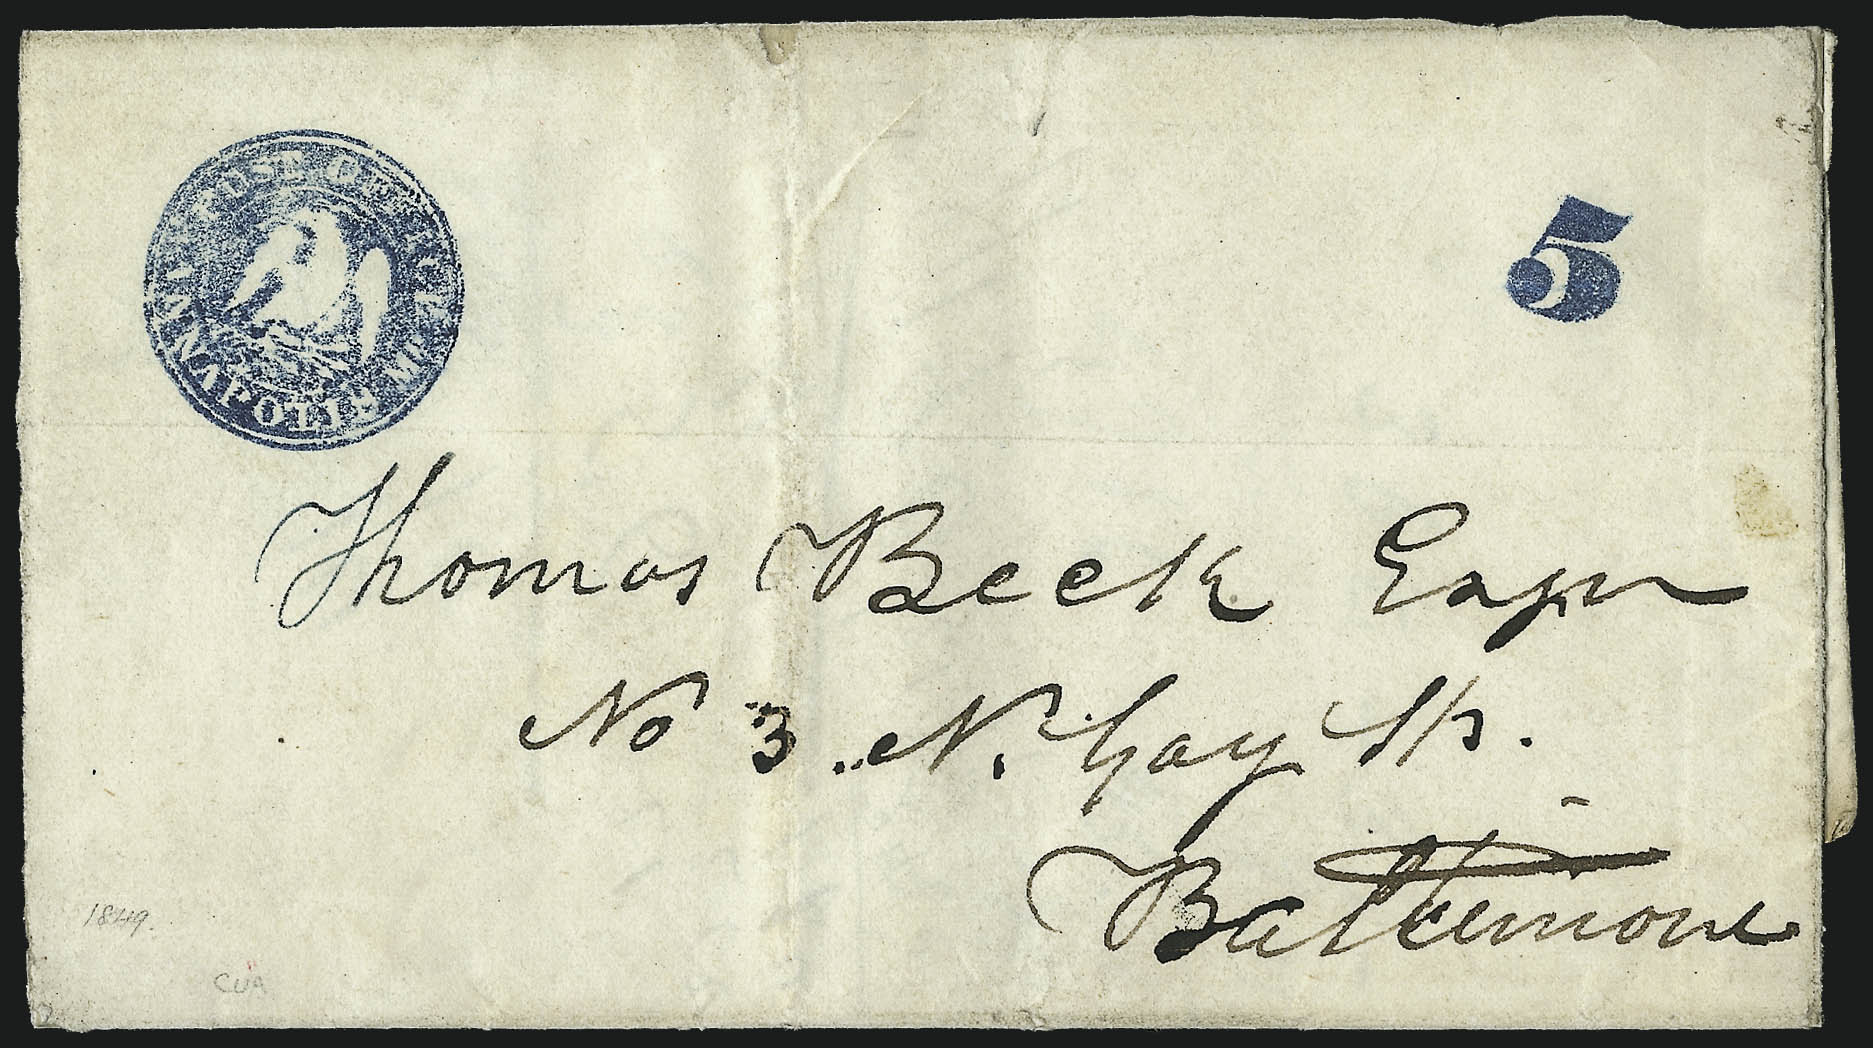 POST OFFICE
ANNAPOLIS MD.
5
Thomas Beck Esqr
No 3. N. Gay St.
Baltimore
1849.
CUA